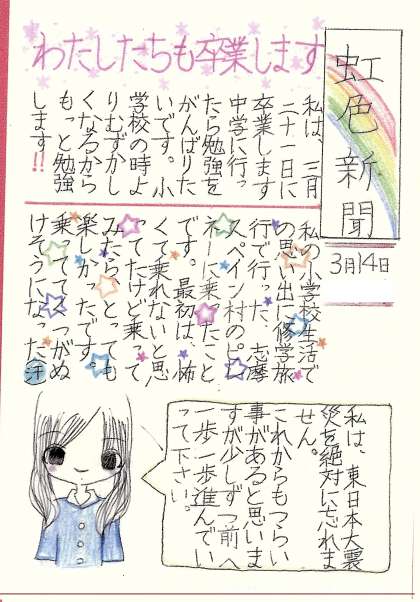 虹色新聞
3月14日
わたしたちも卒業します
私は、三月
二十一日に
卒業します
中学に行っ
たら勉強を
がんばりた
いです。小
学校の時よ
りむずかし
くなるから
もっと勉強
します!!
私の小学校生活で
の思い出に修学旅
行で行った、志摩
スペイン村のピレ
ネーに乗ったこと
です。最初は、怖
くて乗れないと思
ってたけど乗って
みたら、とっても
楽しかったです。
乗っててくつがぬ
けそうになった汗
私は、東日本大震
災を絶対に忘れま
せん。
これからもつらい
事があると思いま
すが少しずつ前へ
一歩一歩進んでい
って下さい。